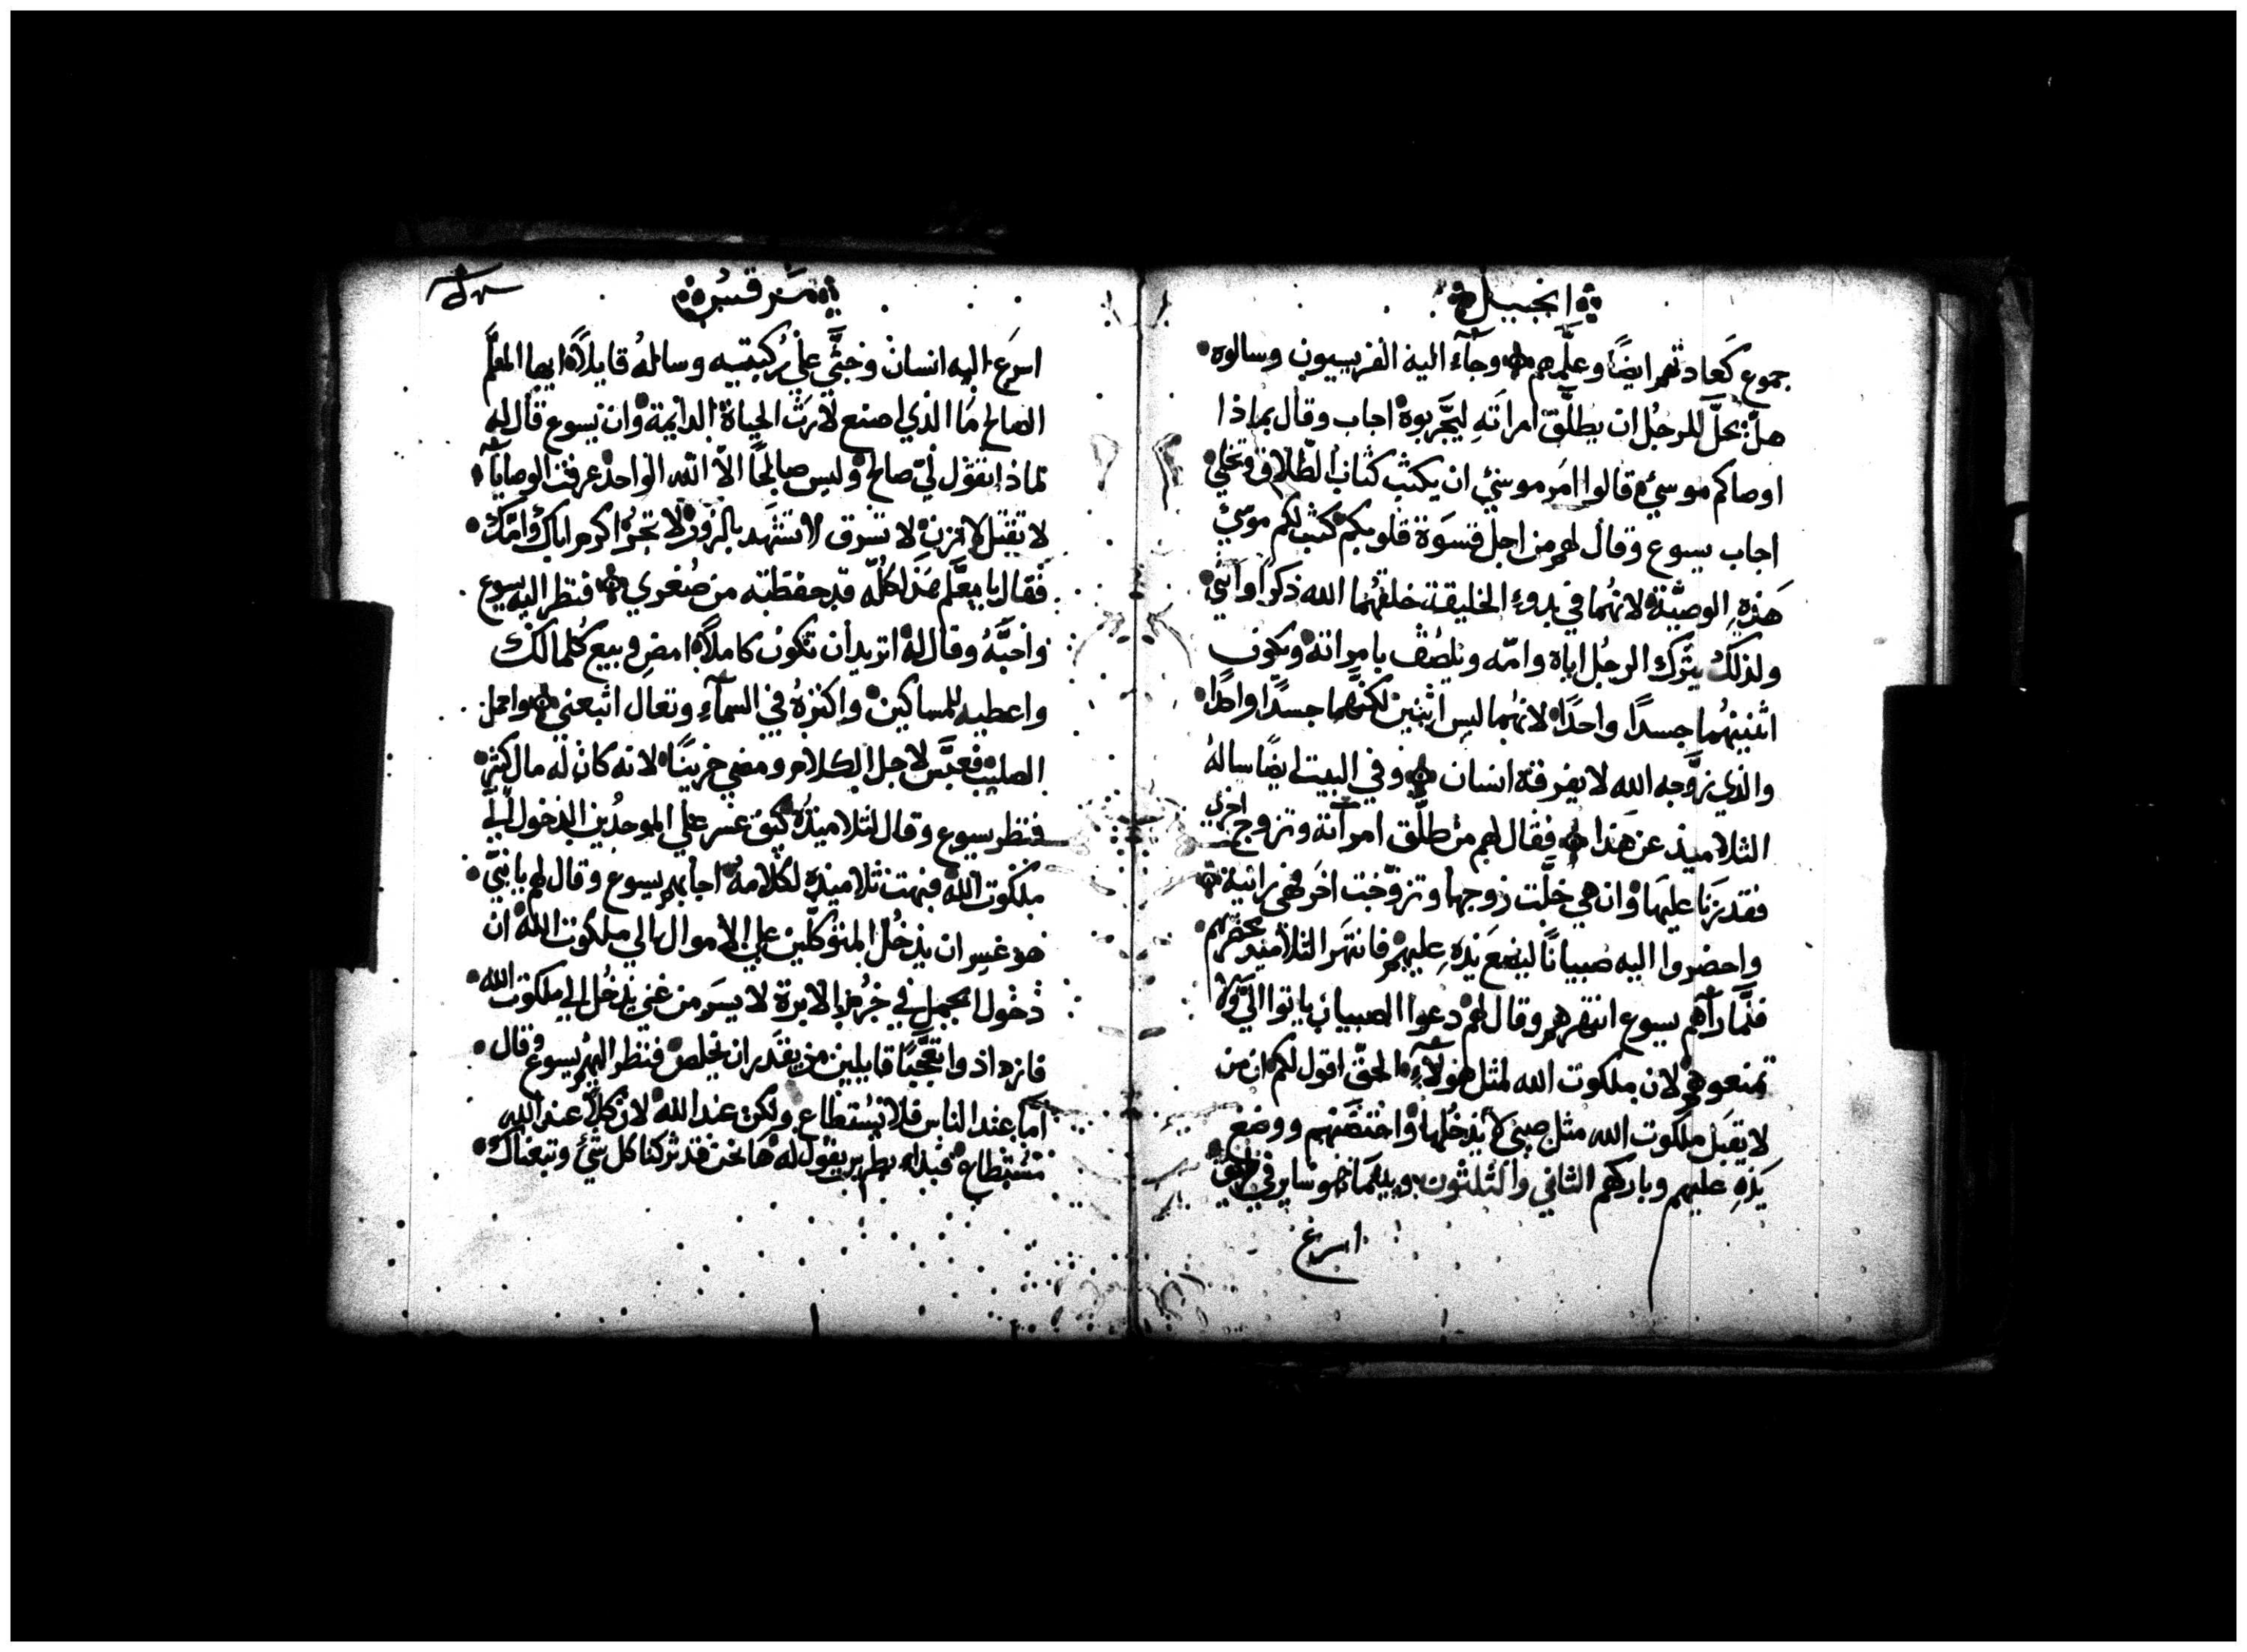 انجيل
جموع كعادتهم ايضًا وعلّمهم وجآء اليه الفريسيون وسالوه
هل يحلّ للرجُل ان يطلّق امراتَهِ ليجّربوه اجاب وقال بماذا
اوصاكم موسي قالوا امَر موسي ان يكتب كتاب الطّلاق وتخلي
اجاب يسوع وقال لهم من اجل قسَوة قلوبكم كتب لكم موسي
هَذهِ الوصيّة لانهُما في بدوءِ الخليقة خلقهُما الله ذكرًا وانثي
ولذلك يترك الرجُل اباه وامّه ويلصُق بامراته ويكون
اثنينهُما جسدًا واحدًا لانهُما ليس اثنين لكنّهما جسدًا واحدًا
والذي زوّجه الله لا يفرقه انسان وفي البيت ايضًا سالهُ
التلاميذ عن هَذا فقال لهم من طلّق امرآته وتزوج اخري
فقد زَنا عليهَا وان هي خلّت زوجها وتزوّجت اخَر فهي زانية
واحضروا اليه صبيانًا ليضعَ يَدهِ عليهم فانتهَر التلاميذ محضريهم
فلمّا رآهم يسوع انتهرهم وقال لهم دعوا الصبيان ياتوا اليّ ولا
تمنعوهم لان ملكوت الله لمثل هَولآءِ الحقّ اقول لكم ان من
لا يقبَل ملكوت الله مثل صبيّ لا يَدخُلها واحتضَنهم ووضع
يَدَهِ عليهم وباركهم الثاني والثلثون وبينمَا هو ساير في الطريق
اسرع
مرقس
اسرَع اليه انسان وجثّي علي رُكبتيه وسالهُ قايلًا ايها المعلّم
الصالح مَا الذي اصنع لارَث الحياة الدايمة وان يسوع قال له
لماذا تقول ليّ صالح وليس صالحًا الّا الله الواحد عرفت الوصايآ
لا تقتل لا تزن لا تسرق لا تشهَد بالزور لا تجُر اكرم اباك وامّك
فَقال يا معَلّم هَذا كُلّه قد حفظته من صُغري فنظر اليه يسوع
واحَبّهُ وقال له اتريد ان تكون كاملًا امضِ وبيع كُلما لك
واعطيه للمساكين واكنزهُ في السمآءِ وتعال اتبعني واحمل
الصليب فعبّس لاجل الكلام ومضي حزينًا لانه كان له مال كثير
فنظر يسوع وقال لتلاميذهُ كيف عَسر علي الموجُدين الدخول الي
ملكوت الله فبهت تلاميذه لكلامهُ اجابهم يسوع وقال لهم يا بنيّ
هوذ عَسِر ان يدخُل المتوكّلين علي الاموال الي ملكوت الله ان
دخول الجمل في خُرم الابرة لايسَر من غني يَدخُل الي ملكوت الله
فازداذوا تعَجّبًا قايلين من يقدَر ان يخلص فنظر اليهُم يسوع وقال
امّا عند الناس فلا تُستطاع ولكن عند الله لان كلًّا عند الله
مُستطاع فبداء بطرس يقول له هَا نحن قد تركنا كل شئ وتبعناك